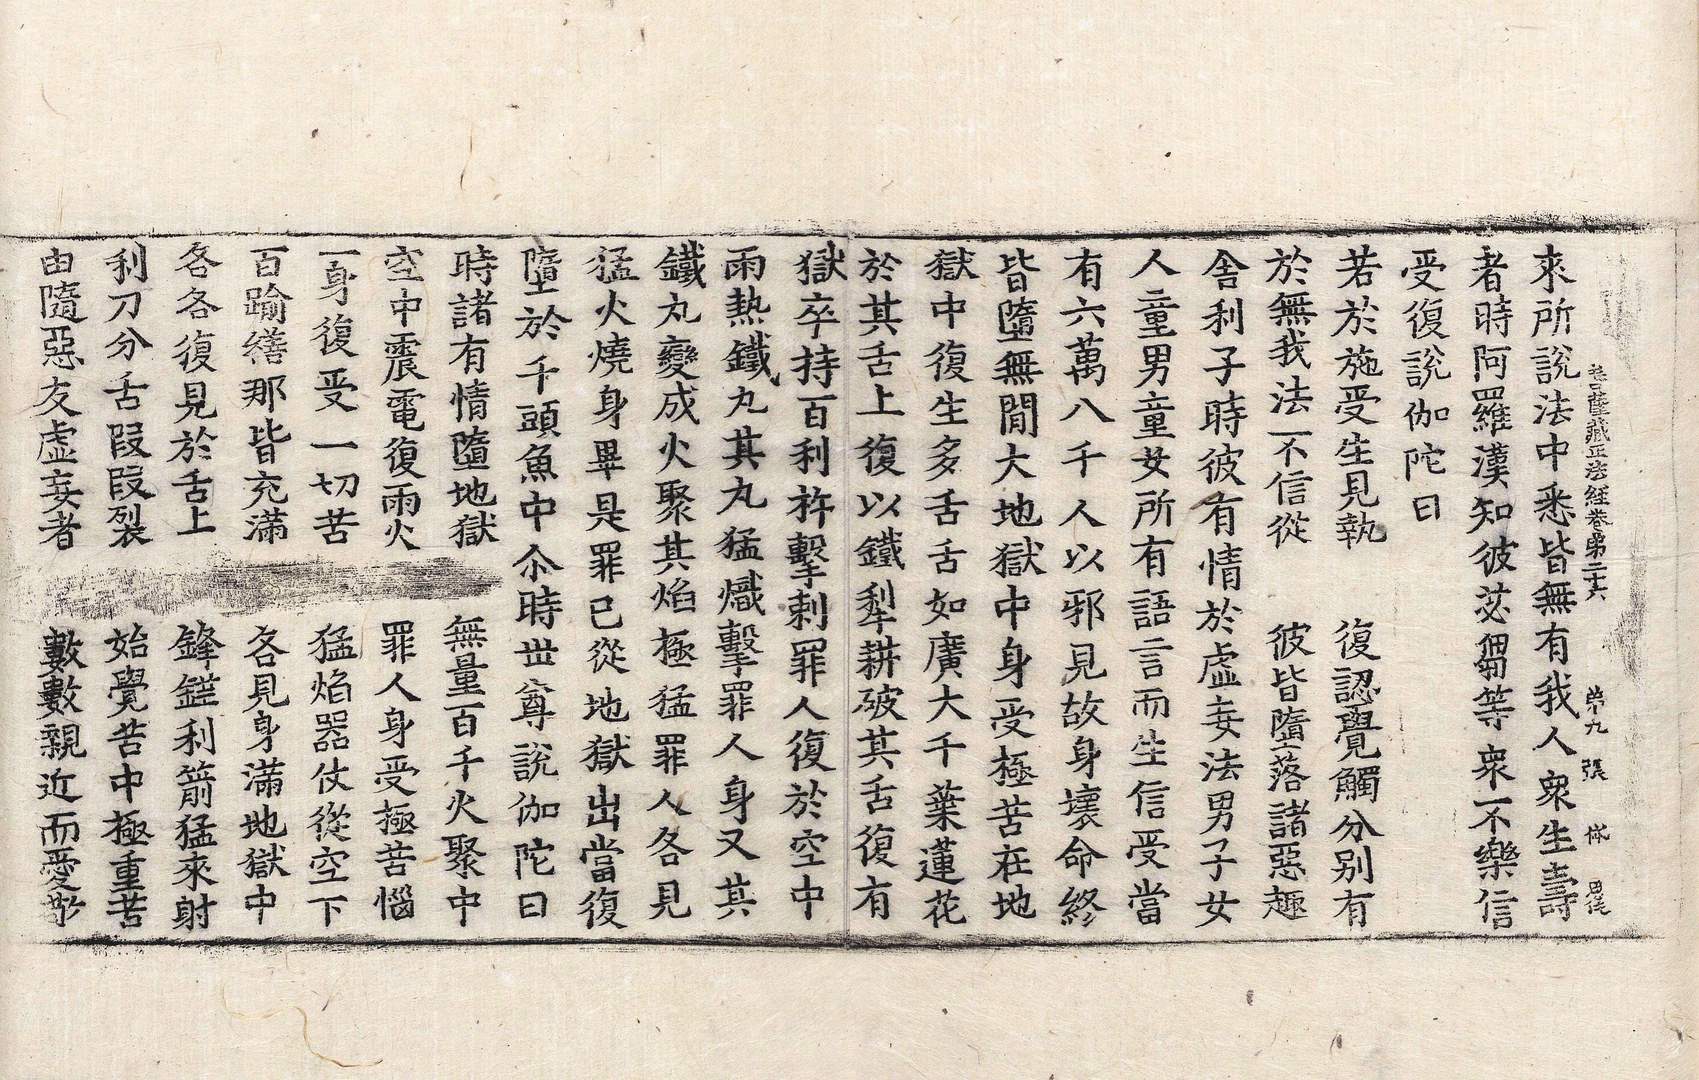 菩薩藏正法經卷第二十六 第九張 休
來所說法中悉皆無有我人衆生壽
者時阿羅漢知彼苾芻等衆不樂信
受復說伽陀曰
若於施受生見執 復認覺觸分别有
於無我法不信從 彼皆墮落諸惡趣
舍利子時彼有情於虛妄法男子女
人童男童女所有語言而生信受當
有六萬八千人以邪見故身壞命終
皆墮無間大地獄中身受極苦在地
獄中復生多舌舌如廣大千葉蓮花
於其舌上復以鐵犁耕破其舌復有
獄卒持百利杵擊刺罪人復於空中
雨熱鐵丸其丸猛熾擊罪人身又其
鐵丸變成火聚其焰極猛罪人各見
猛火燒身畢是罪已從地獄出當復
墮於千頭魚中尒時世尊說伽陀曰
時諸有情墮地獄 無量百千火聚中
空中震電復雨火 罪人身受極苦惱
一身復受一切苦 猛焰器仗從空下
百踰繕那皆充滿 各見身滿地獄中
各各復見於舌上 鋒鋩利箭猛來射
利刀分舌段段裂 始覺苦中極重苦
由隨惡友虛妄者 數數親近而愛敬